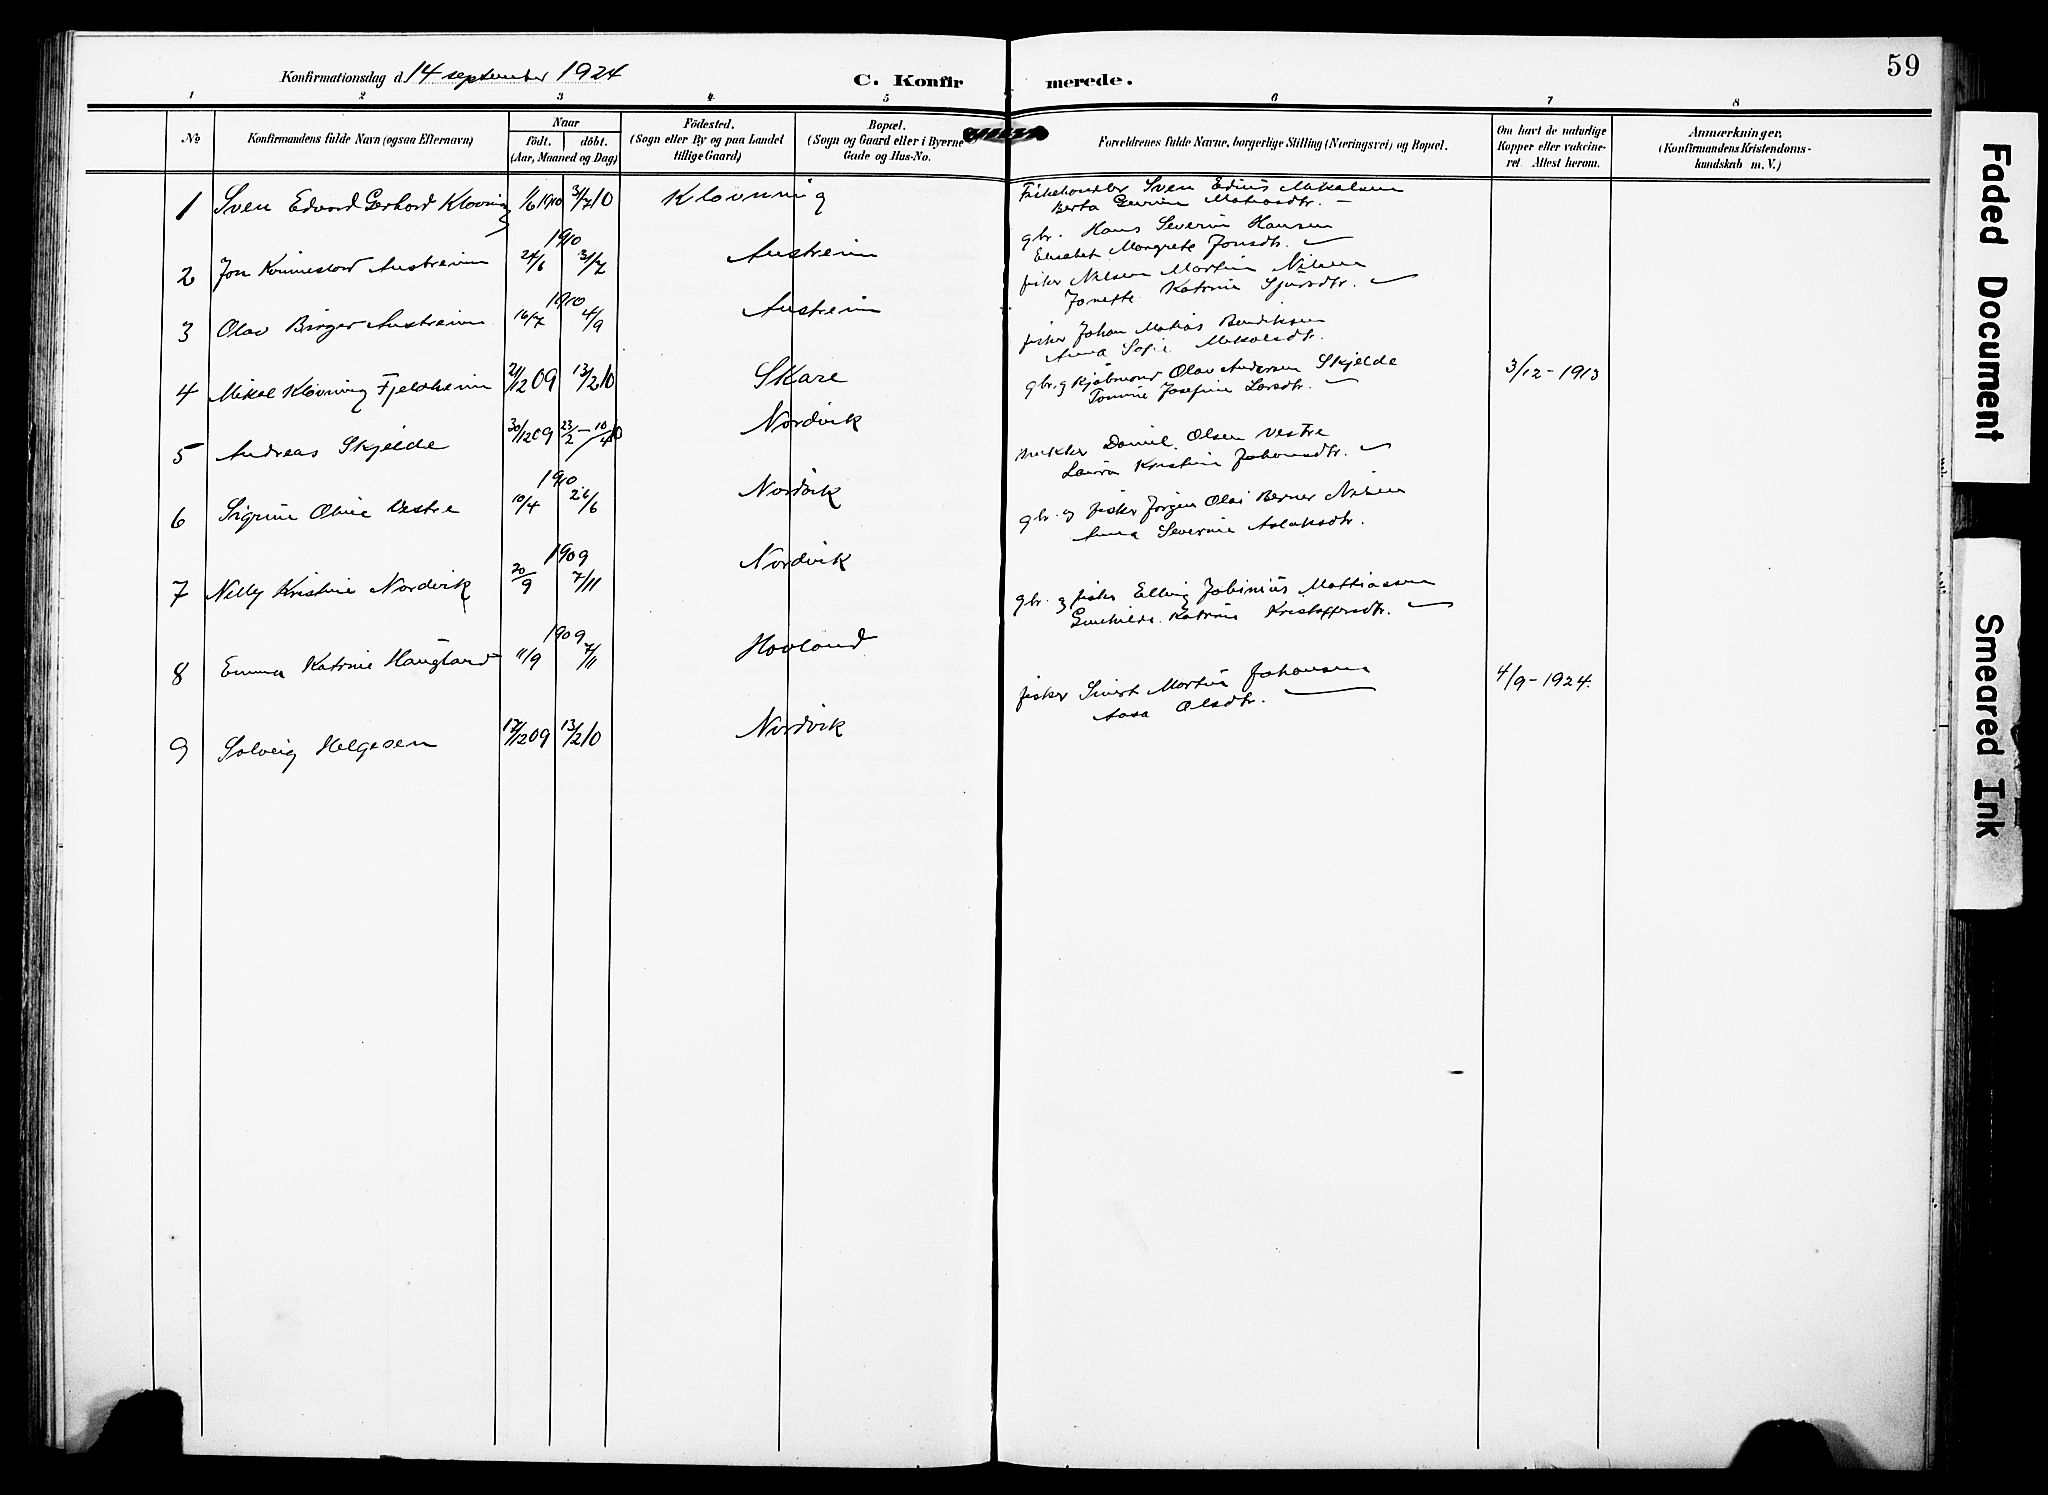 59
Konfirmationsdag d. 14 september 1924
C. Konfirmerede.
1 2 3 4 5 6 7 8
No
Konfirmandens fulde Navn (ogsaa Efternavn)
Naar
født. døbt.
(Aar, Maaned og Dag)
Fødested.
(Sogn eller By og paa Landet
tillige Gaard)
Bopæl.
(Sogn og Gaard eller i Byerne
Gade og Hus-No.
Forældrenes fulde Navne, borgerlige Stilling (Næringsvei) og Bopæl.
Om havt de naturlige
Kopper eller vakcine-
ret. Attest herom.
Anmærkninger.
(Konfirmandens Kristendoms-
kundskab m. V.)
1 Sven Edvard Gerhard Klovning 1/6 1910 3/7 10 Klovning
Fiskehandler Sven Edius Mikalsen
Berta Mattiasdtr. —
2 Jon Austreim 1910 24/6 31/7 Austreim
gbr. Hans Severin Hansen
Elisabet Margrete Jonsdtr.
3 Olav Birger Austreim 1910 16/7 4/9 Austreim
fisker Nilsen Martin Nilsen
Jonette Katrine Sjursdtr.
4 Mikal Klovning Fjeldheim 21/12 09 13/2 10 Skare
fisker Johan Matias Bendiksen
Anna Sofie Mikalsdtr.
5 Andreas Skjelde 30/12 09 23/2 – 10/4 10 Nordvik
gbr. og kjøbmand Olav Andersen Skjelde
Tomine Josefine Larsdtr.
3/12 – 1913
6 Sigrun Oline Vestre 1910 10/4 26/6 Nordvik
Daniel Olsen Vestre
Laura Kristine Johansdtr.
7 Nelly Kristine Nordvik 1909 20/9 7/11 Nordvik
gbr. og fisker Jørgen Olai Berner Nilsen
Anna Severine Aslaksdtr.
8 Emma Katrine Haugland 1909 11/9 7/11 Hovland
gbr. og fisker Elling Mattiassen
Gunhilde Katrine Kristoffersdtr.
9 Solveig Helgesen 17/12 09 13/2 10 Nordvik
fisker Sivert Martin Johansen
Aasa Olsdtr.
4/9 – 1924.
Faded Document
Smeared Ink